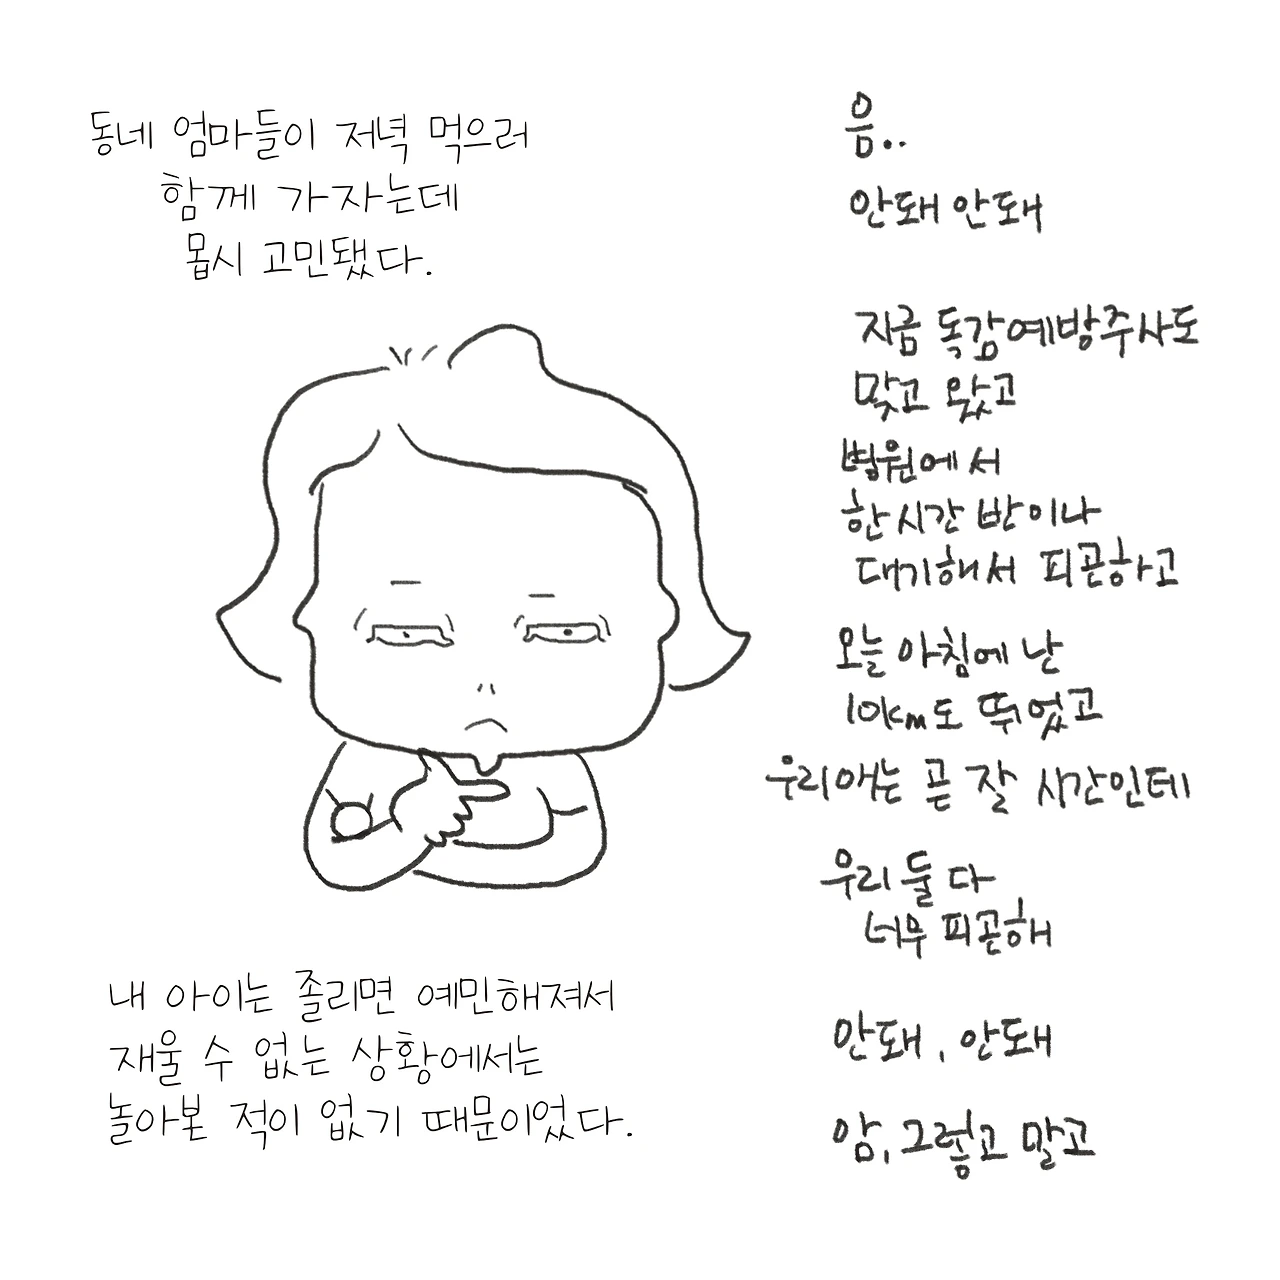 동네 엄마들이 저녁 먹으러
함께 가자는데
몹시 고민됐다.
음..
안돼 안돼
지금 독감예방주사도
맞고 왔고
병원에서
한시간 반이나
대기해서 피곤하고
오늘 아침에 난
10km도 뛰었고
우리애는 곧 잘 시간인데
우리 둘 다
너무 피곤해
안돼, 안돼
암, 그렇고 말고
내 아이는 졸리면 예민해져서
재울 수 없는 상황에서는
놀아본 적이 없기 때문이었다.